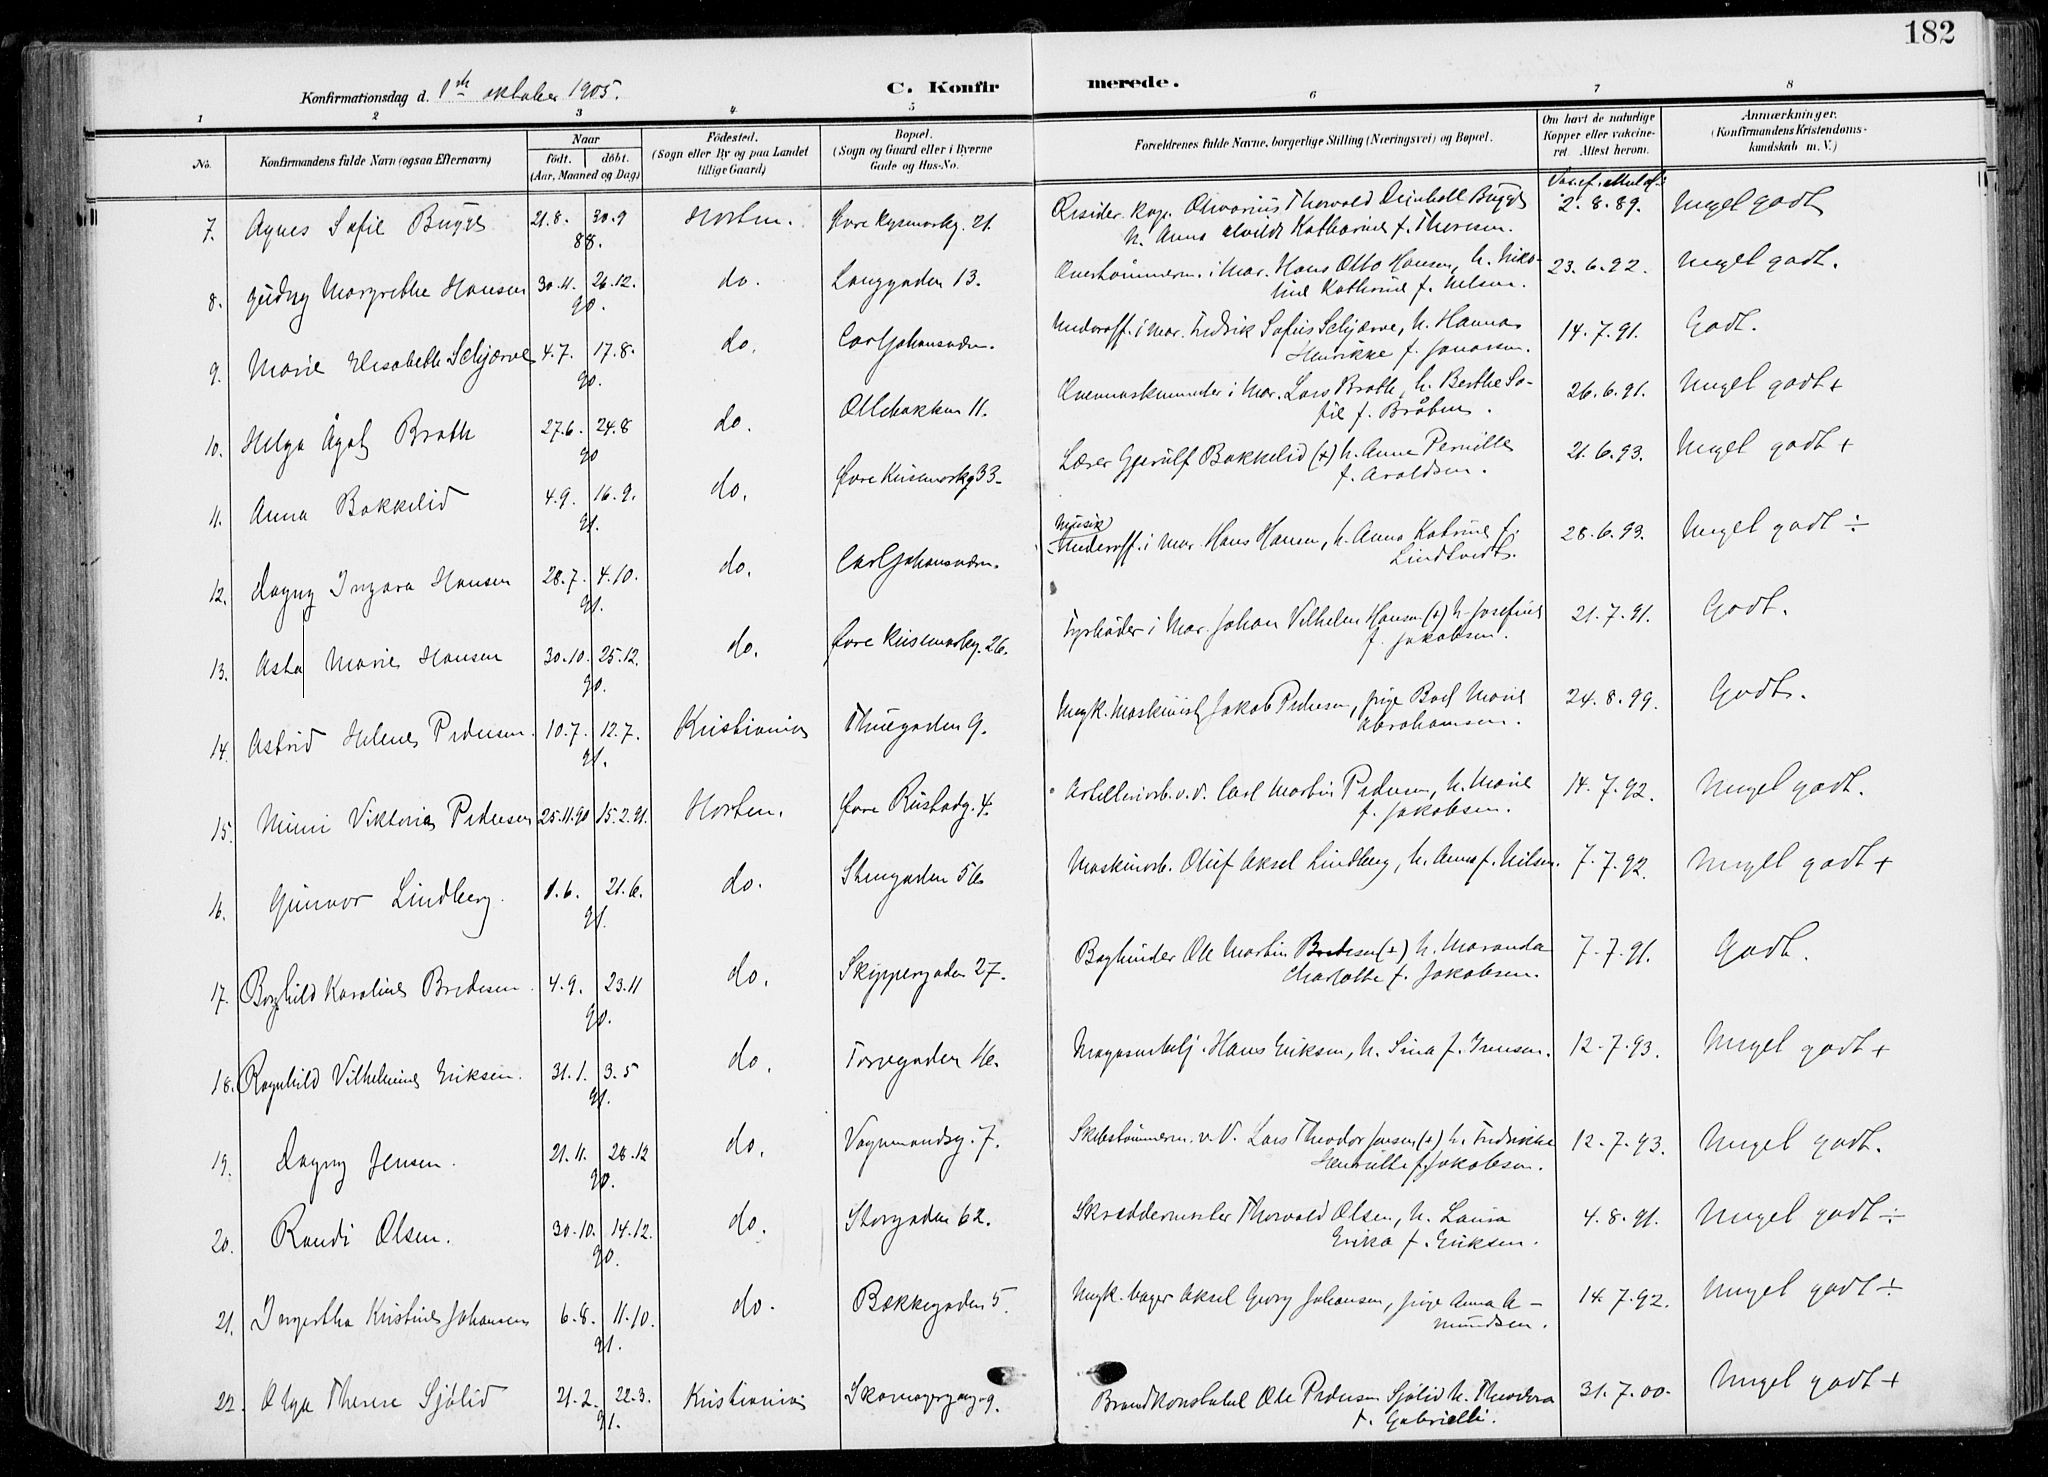 182
Konfirmationsdag d. 1ste oktober 1905.
C. Konfirmerede.
1 2 3 4 5 6 7 8
No.
Konfirmandens fulde Navn (ogsaa Efternavn)
Naar
födt. döbt.
(Aar, Maaned og Dag)
Födested.
(Sogn eller By og paa Landet
tillige Gaard)
Bopæl.
(Sogn og Gaard eller i Byerne
Gade og Hus-No.
Forældrenes fulde Navne, borgerlige Stilling (Næringsvei) og Bopæl.
Om havt de naturlige
Kopper eller vakcine-
ret. Attest herom.
Anmærkninger.
(Konfirmandens Kristendoms-
kundskab m. V.)
7. Agnes Sofie Bugge 21.8. 30.9 88. Horten. Øvre Keisemarkg. 21. Resider. kap. Thorvald Bugge
h. Anna Alvilde Katharine f. Thoresen. 2.8.89. Meget godt
8. Gudny Margrethe Hansen 30.11. 26.12. 90. do. Langgaden 13. Overtømmerm. i Mar. Hans Otto Hansen, h. Niko-
line Kathrine f. Nelsen. 23.6.92. Meget godt.
9. Marie Elisabeth Schjerve 4.7. 17.8. 90. do. Carljohansværn. Underoff. i Mar. Fredrik Sofus Schjerve, h. Hanna
Henrikke f. Jonassen. 14.7.91. Godt.
10. Helga Ågot Brath 27.6. 24.8 90 do. Ollebakken 11. i Mar. Lars Brath, h. Berthe So-
fie f. Bråten. 26.6.91. Meget godt +
11. Anna Bakkelid 4.9. 16.9. 91. do. Øvre Keisemarkg 33. Lærer Gjerulf Bakkelid (+) h. Anne Pernille
f. Aroldsen. 21.6.93. Meget godt +
12. Dagny Ingara Hansen 28.7. 4.10. 91. do. Carljohansværn. Musik
Underoff. i Mar. Hans Hansen, h. Anna Katrine f.
Lindtvedt. 28.6.93. Meget godt ÷
13. Asta Marie Hansen 30.10. 25.12. 90. do. Øvre Keisemarkg. 26. Fyrbøder i Mar. Johan Vilhelm Hansen (+) h. Josefine
f. Jakobsen. 21.7.91. Godt.
14. Astrid Helene Pedersen. 10.7. 12.7. 91. Kristiania Thuegaden 9. Ungk. Maskinist Jakob Pedersen, pige Bod Marie
Abrahamsen. 24.8.99. Godt.
15. Mimi Viktoria Pedersen 25.11.90 15.2.91. Horten. Øvre Rustadg. 4. Artilleriarb. v. V. Carl Martin Pedersen, h. Marie
f. Jakobsen. 14.7.92. Meget godt.
16. Gunvor Lindberg. 1.6. 21.6. 91. do. Stengaden 56 Maskinarb. Oluf Aksel Lindberg, h. Anna f. Nilsen. 7.7.92. Meget godt +
17. Borghild Karoline Bredesen. 4.9. 23.11 90. do. Skippergaden 27. Bogbinder Ole Martin Bredesen (+) h. Maranda
Charlotte f. Jakobsen. 7.7.91. Godt.
18. Ragnhild Vilhelmine Eriksen. 31.1. 3.5 91. do. Torvegaden Magasinbetj. Hans Eriksen, h. Sina f. Iversen. 12.7.93. Meget godt +
19. Dagny Jensen. 21.11. 28.12 90. do. Vognmandsg. 7. Skibstømmerm. v. V. Lars Theodor Jensen (+) h. Fredrikke
Henriette f. Jakobsen. 12.7.93. Meget godt.
20. Randi Olsen. 30.10. 14.12. 90. do. Storgaden 62. Skræddermester Thorvald Olsen, h. Laura
Erika f. Eriksen. 4.8.91. Meget godt ÷
21. Ingertha Kristine Johansen 6.8. 11.10. 91. do. Bækkegaden 5. Ungk. bager Aksel Georg Johansen, pige Anna A-
mundsen. 14.7.92. Meget godt ÷
22. Olga Therese Sjølid 21.2. 22.3. 91. Kristiania Skomagergang 9. Brandkonstabel Ole Pedersen Sjølid h. Theodora
f. Gabrielli. 31.7.00. Meget godt +